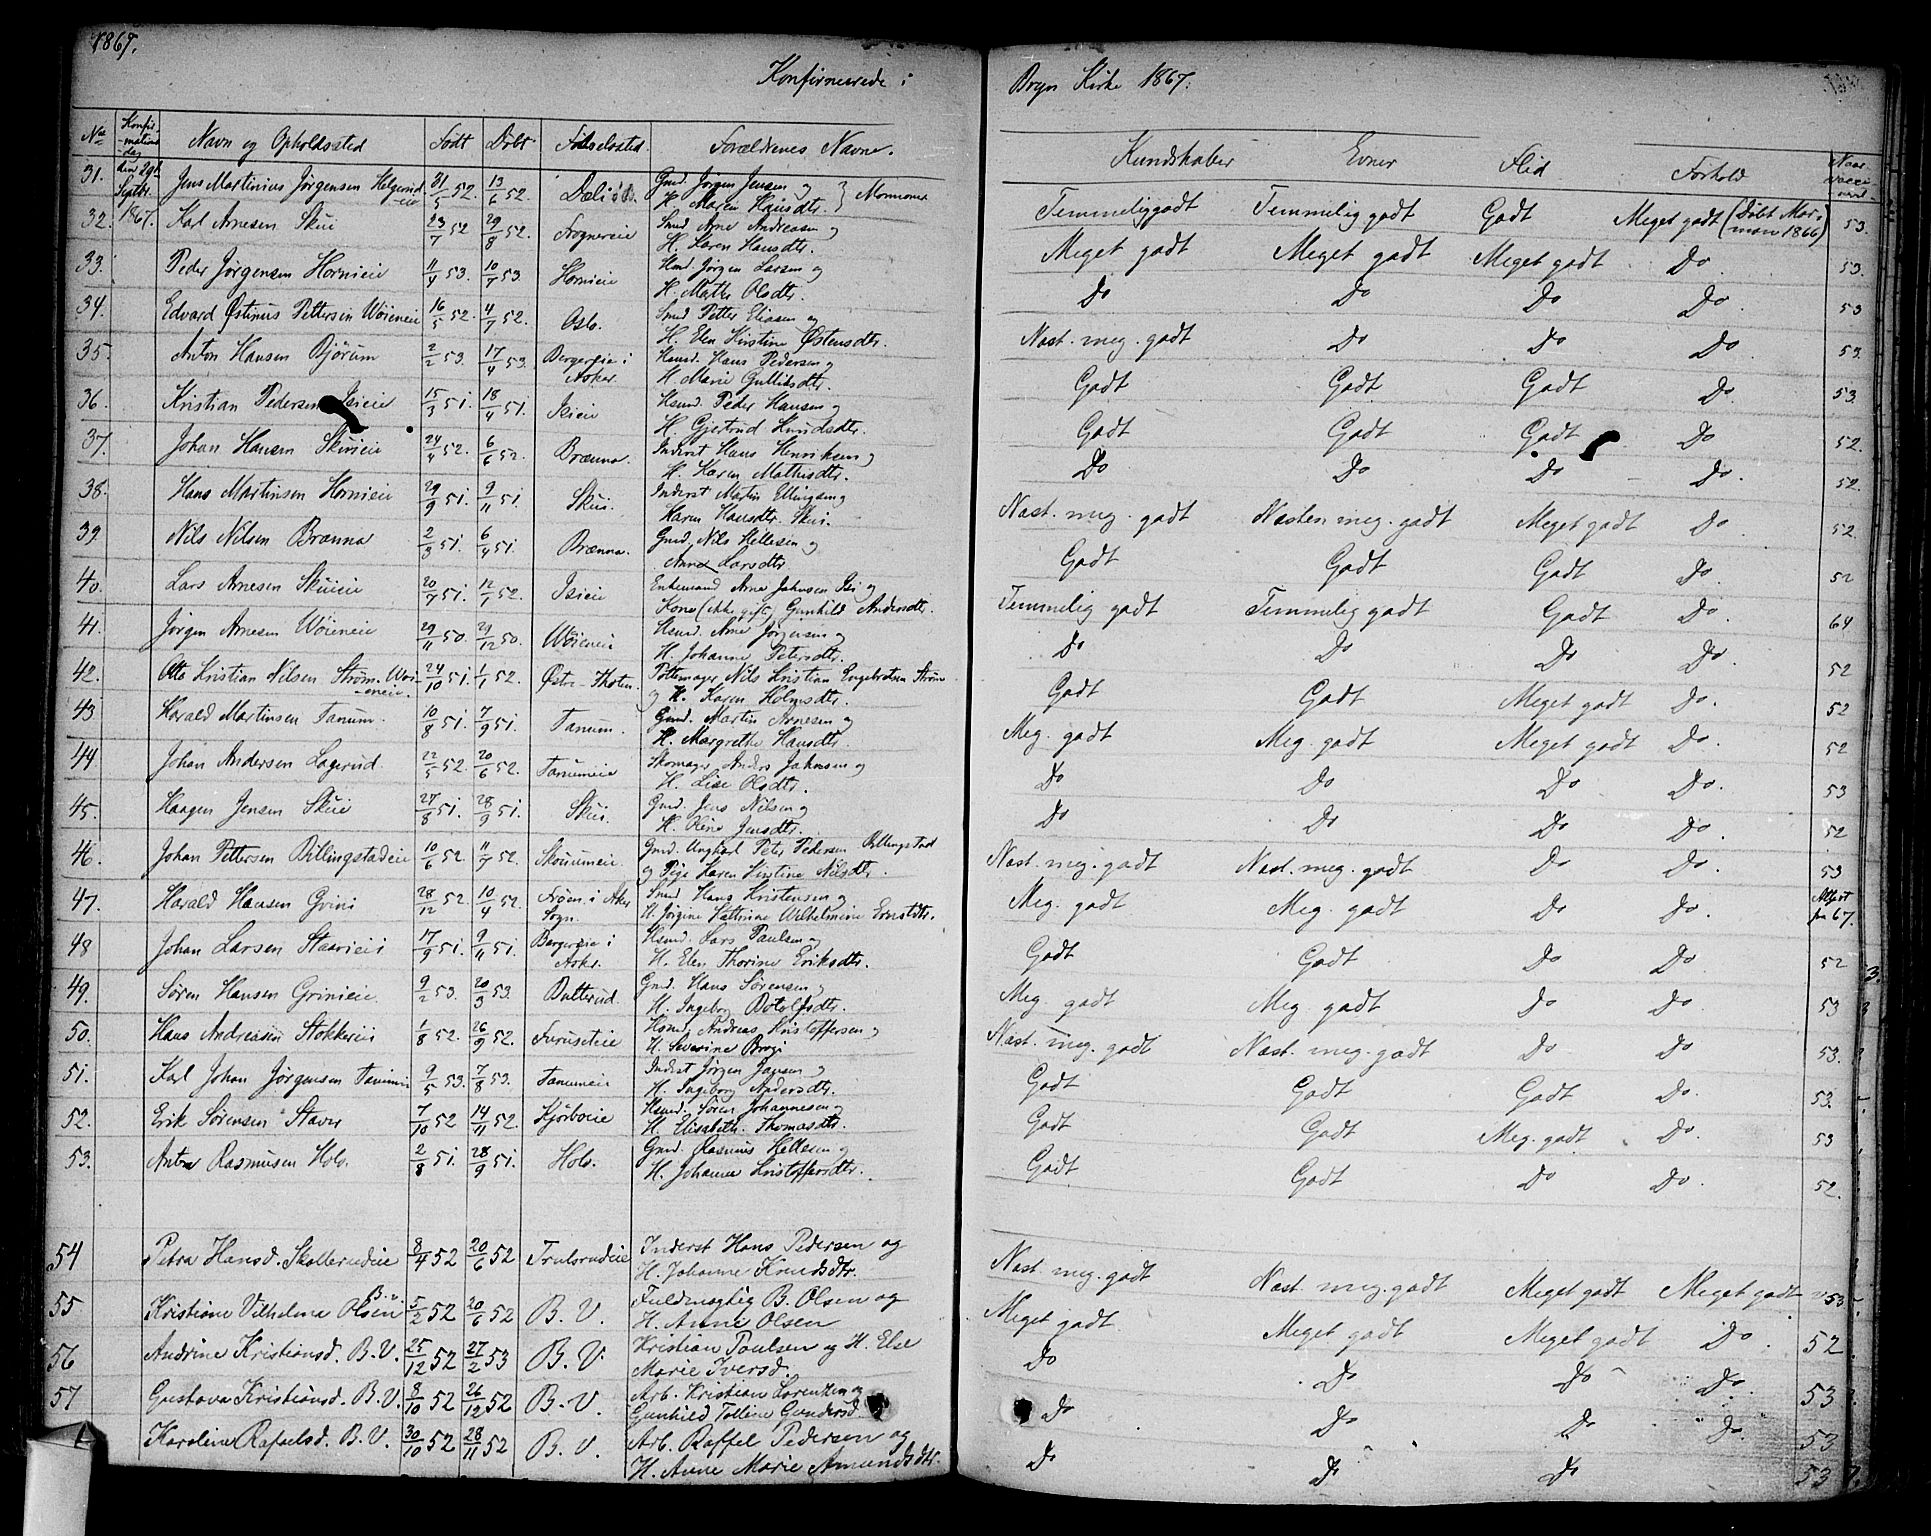 1867.
Konfirmerede i Bryn Kirke 1867.
No Konfirmations dag Navn og Opholdssted Født Døbt Fødselssted Forældrenes Navne. Kundskaber Evner Flid Forhold Naar vaccinered
31. den 29de Septbr. 1867. Jens Martinius Jørgensen Helgerud-eie 31/5 52. 13/6 52. Gmd. Jørgen Jensen og H. Maren Hansdtr. } Mormoner Temmelig godt Temmelig godt Godt Meget godt (Døbt Mormon 1866) 53.
32. Karl Arnesen Skui 23/7 52 29/8 52. Frognereie Smd Arne Andreasen og H. Karen Hansdtr. Meget godt Meget godt Meget godt Do 53.
33. Peder Jørgensen Hornieie 11/4 53. 10/7 53. Hornieie Hmd. Jørgen Larsen og H. Mathe Olsdtr. Do Do Do Do. 53
34. Edvard Østinus Pettersen Wøieneie 16/5 52. 4/7 52. Oslo. Smd Petter Eliasen og H. Elen Kirstine Østensdtr. Næst. meg. godt Do Do Do. 53.
35. Anton Hansen Bjørum 2/2 53. 17/4 53. Bergereie i Asker. Husmd. Hans Pedersen og H. Marie Gulliksdtr. Godt Godt Godt Do. 53.
36. Kristian Pedersen Isieie 15/3 51. 18/4 51. Isieie Husmd. Peder Hansen og H. Gjertrud Knudsdtr. Godt Godt Godt Do 52.
37. Johan Hansen Skuieie 24/4 52. 6/6 52. Brænna. Inderst Hans Henriksen og H. Karen Mathisdtr. Do Do Do Do. 52.
38. Hans Martinsen Hornieie 29/9 51. 9/11 51. Skui. Inderst Martin Ellingsen og Karen Hansdtr. Skui. Næst. meg. godt Næsten meg. godt Meget godt Do 52
39. Nils Nilsen Brænna 2/3 51. 6/4 51. Brænna. Gmd. Nils Hellesen og Anne Larsdtr Godt Godt Godt Do. 52
40. Lars Arnesen Skuieie 20/7 51. 12/1 52. Isieie Enkemand Arne Johnsen Isi og Kone (ikke gift) Gunhild Andersdtr. Temmelig godt Temmelig godt Godt Do. 64
41. Jørgen Arnesen Wøieneie 29/11 50. 29/12 50. Wøieneie Husmd. Arne Jørgensen og H. Johanne Petersdtr. Do Do Do Do. 52
42. Otto Kristian Nilsen Strøm. Wøieneie. 24/10 51. 1/1 52. Østre-Thoten Pottemager Nils Kristian Engebretsen Strøm og H. Karen Holmsdtr. Godt Godt Meget godt Do. 52
43 Harald Martinsen Tanum. 10/8 51. 7/9 51. Tanum. Gmd. Martin Arnesen og H. Margrethe Hansdtr. Meg. godt Meg. godt Meget godt Do. 52
44 Johan Andersen Lagerud. 22/5 52. 20/6 52. Tanumeie Skomager Anders Johnsen og H. Lise Olsdtr. Do Do Do Do. 53
45. Haagen Jensen Skui 27/8 51. 28/9 51. Skui. Gmd. Jens Nilsen og H. Oline Jensdtr. Do Do Do Do. 52
46. Johan Pettersen Billingstadeie 10/6 52. 11/7 52. Gmd. Ungkarl Peter Pedersen Billingstad og Pige Karen Kirstine Nilsdtr. Næst. meg. godt Næst. meg. godt Do Do. 53
47. Harald Hansen Grini 28/12 52. 10/4 52. Frøen i Aker Sogn. Smd Hans Kristensen og H. Jørgine Kathrine Wilhelmine Ernstdtr. Meg. godt Meg. godt Do Do. Attest fra 67.
48 Johan Larsen 17/9 51. 9/11 51. Bergereie i Asker. Husmd. Lars Paulsen og H. Elen Thorine Eriksdtr. Godt Godt Do Do. 52
49. Søren Hansen Grinieie. 9/2 53. 20/3 53. Butterud. Gmd. Hans Sørensen og H. Ingeborg Botolfsdtr. Meg. godt Meg godt Do Do. 53
50. Hans Andreasen Stokkereie 1/8 52. 26/9 52. Furuseteie Husmd. Andreas Kristoffersen og H. Severine Næst. meg. godt Næst. meg. godt Do Do 53.
51. Karl Johan Jørgensen Tanum 9/5 53. 7/8 53. Tanumeie Inderst Jørgen Jansen og H. Ingeborg Andersdtr. Godt Godt Godt Do. 53.
52. Erik Sørensen Staver 7/10 52 14/11 52. Kjørboeie Husmd. Søren Johannesen og H. Elisabeth Thomasdtr. Godt Godt Meg. godt Do. 53
53. Anton Rasmusen Hob. 2/8 51. 28/9 51. Hob. Gmd. Rasmus Hellesen og H. Johanne Kristoffersdtr. Godt Godt Do Do. 52.
54 Petra Hansd. Skollerudeie 8/4 52 20/6 52 Trulsrudeie Inderst Hans Pedersen og H. Johanne Knudsdtr. Næst. meg. godt Næst. meg. godt Meget godt Meget godt 53
55 Kristiane Vilhelmine Olsen B.v. 5/2 52 20/6 52 B. V. Fuldmægtig B. Olsen og H. Anne Olsen Meget godt Meget godt Meget godt Do. 52
56 Andrine Kristiansd. B. V. 25/12 52 27/2 53 B. V. Kristian Poulsen og H. Else Marie Iversd. Do Do Do Do. 53
57 Gustava Kristiansd. B. V. 8/10 52 26/12 52 B. V. Arb. Kristian Lorentzen og Gunhild Tolline Gundersd. Do Do Do Do. 53
Karoline Rafaelsd. B. V. 30/10 52 28/11 52 B. V. Arb. Raffel Pedersen og H. Anne Marie Amundsdtr. Do Do Do 53